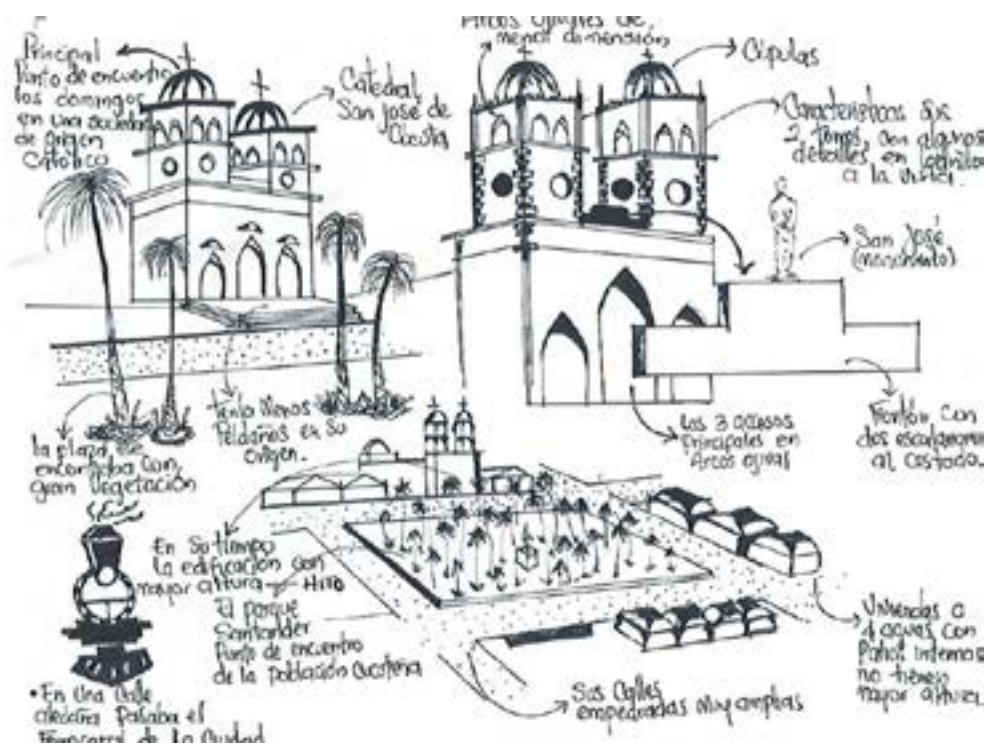 Principal
Punto de encuentro
los domingos
en una sociedad
de origen
Católico
Catedral
San José de
Cúcuta
Arcos ojivales de
menor dimensión
Cúpulas
Características sus
2 torres, con algunos
detalles en ladrillo
a la vista.
San José
(monumento)
Frontón con
dos
al costado.
los 3 accesos
principales en
Arcos ojivas
tenía menos
Peldaños en su
origen.
la plaza se
encontraba con
gran vegetación
En su tiempo
la edificación con
mayor altura → Hito
El parque
Santander
Punto de encuentro
de la población cucuteña
Viviendas a
4 aguas con
Patios internos
no tienen
mayor altura
Sus Calles
empedradas muy amplias
• En una calle
aledaña Pasaba el
Ferrocarril de la Ciudad